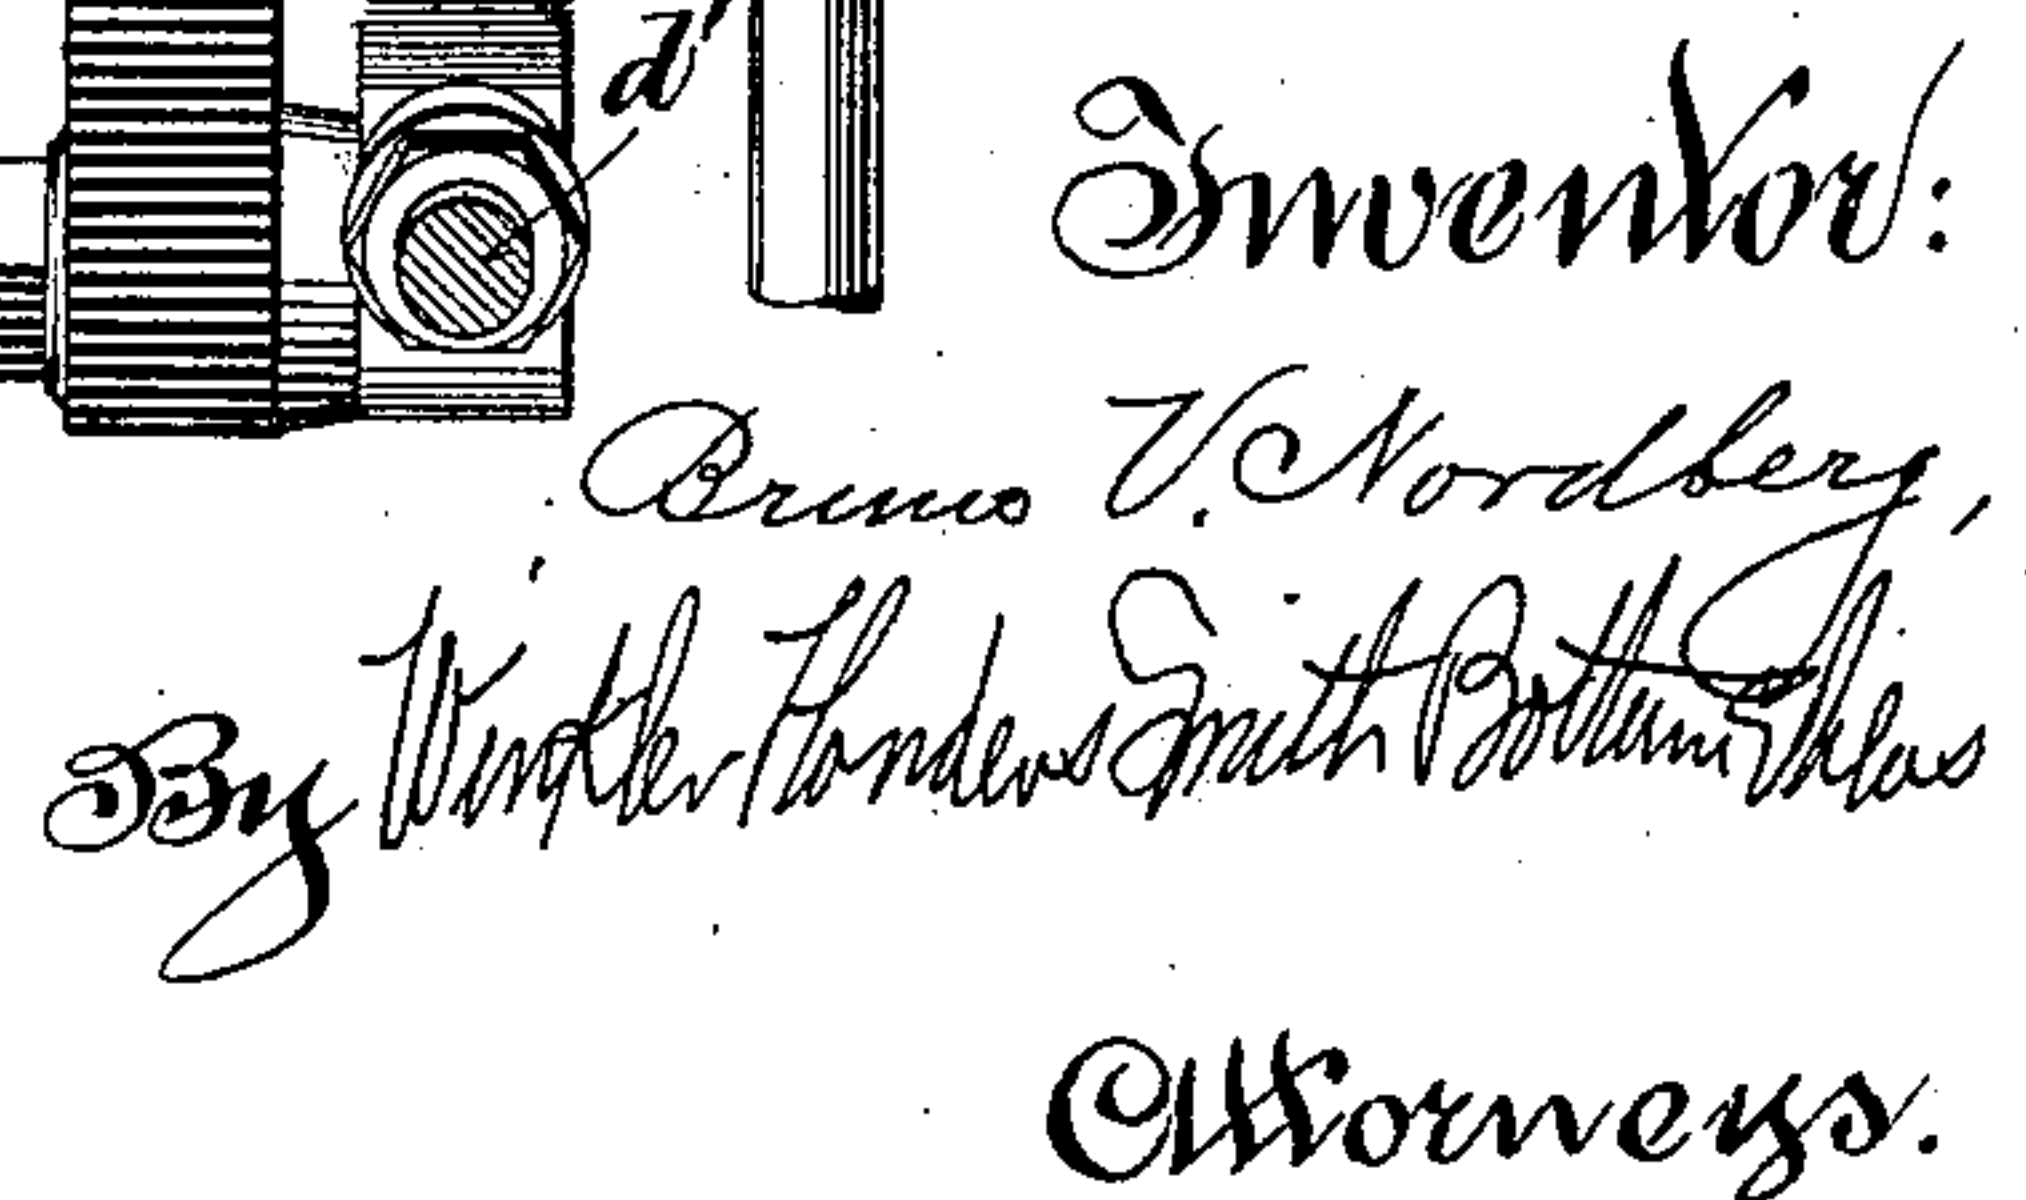 d'
Inventor:
Bruno V. Nordberg,
By Winkler Flanders Smith Bottum & Vilas
Attorneys.